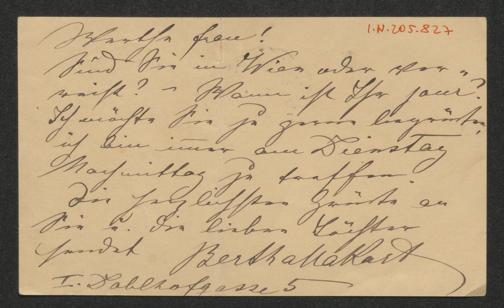 I.N. 205.827
Werthe Frau!
Sind Sie in Wien oder ver-
reist? – Wann ist Ihr jour?
Ich möchte Sie so gerne begrüßen,
ich bin immer am Dienstag
Nachmittag zu treffen
Die herzlichsten Grüße an
Sie u. die lieben Töchter
sendet Bertha Makart
I. Doblhofgasse 5